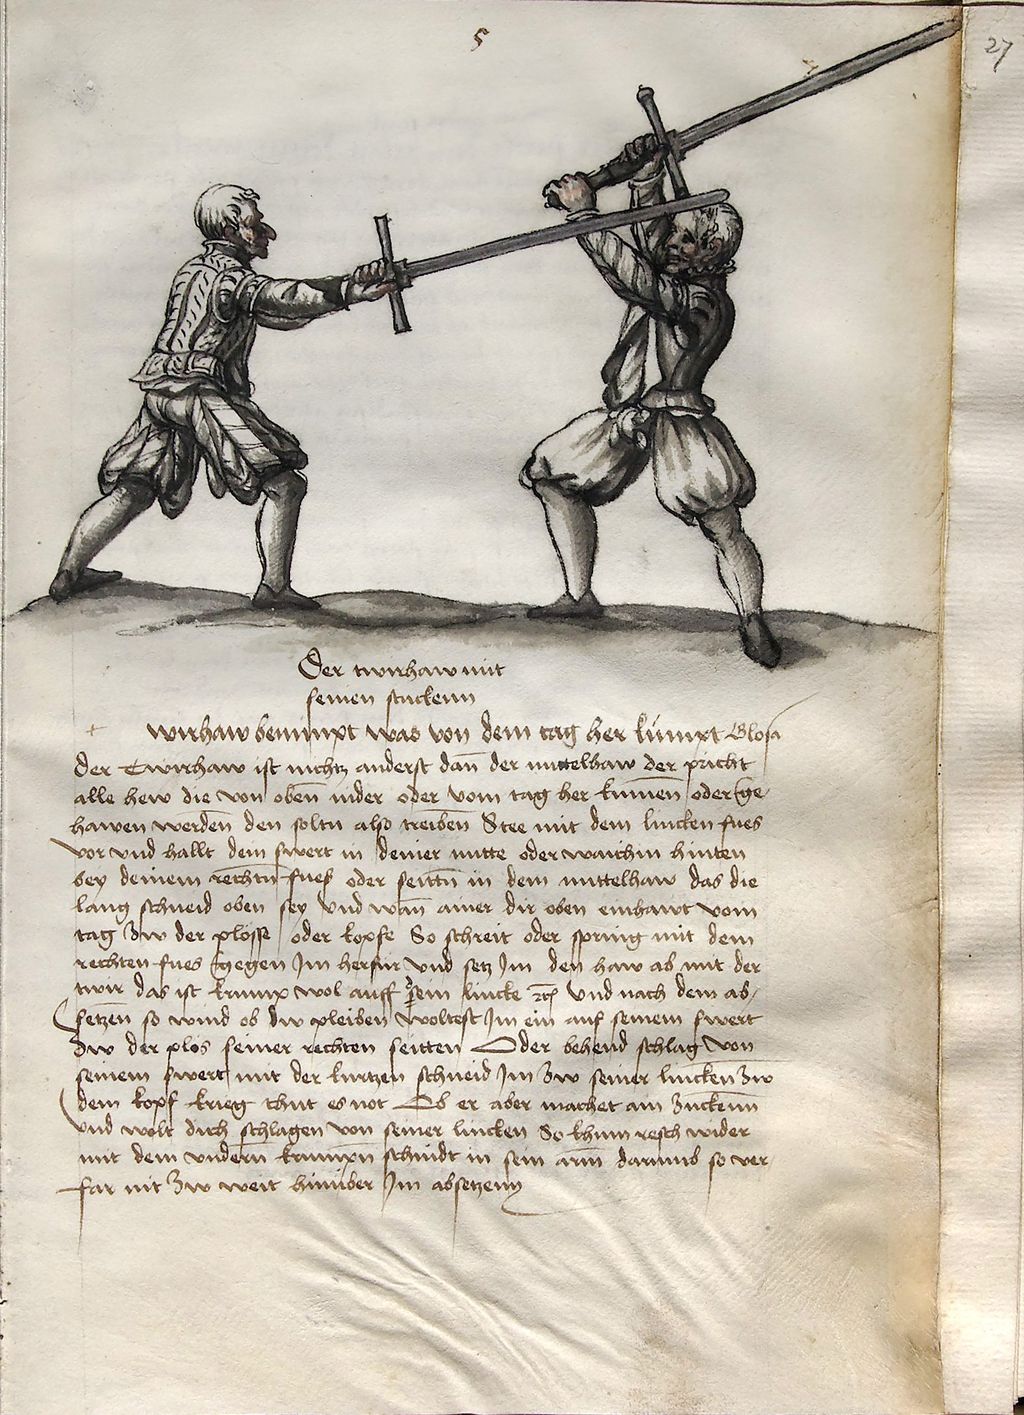 5
27
Der twirhaw mit
seinen stuckenn
wirhaw benimpt was von dem tag her kumpt Glosa
Der Twirhaw ist nichtz anderst dan̄ der mittelhaw der pricht
alle hew die von oben̄ nider oder vom tag her kumen̄ oder ge-
hawen werden̄ den soltu also treiben̄ Stee mit dem lincken fues
vor vnd hallt dein swert in deiner mitte oder waichin hinten
bey deinem rechtn̄ fues oder seittn̄ in dem mittelhaw das die
lang schneid oben sey Vnd wan̄ ainer dir oben einhawt vom
tag zw der plosse oder kopfe So schreit oder spring mit dem
rechten fues gegen Im herfur vnd setz Im den haw ab mit der
twir das ist krump wol auff sein lincke Vnd nach dem ab-
setzen̄ so wind ob dw pleiben woltest Im ein auf seinem swert
zw der plos seiner rechten seitten Oder behend schlag von
seinem swert mit der kurtzen schneid Im zw seiner lincken̄ zw
dem kopf krieg thut es not Ob er aber machet ain zuckenn̄
vnd wolt dich schlagen von seiner lincken So khum resch wider
mit dem vndern̄ krumpn̄ schnidt in sein arm̄ darumb so ver-
far nit zw weit hinuber Im absetzenn